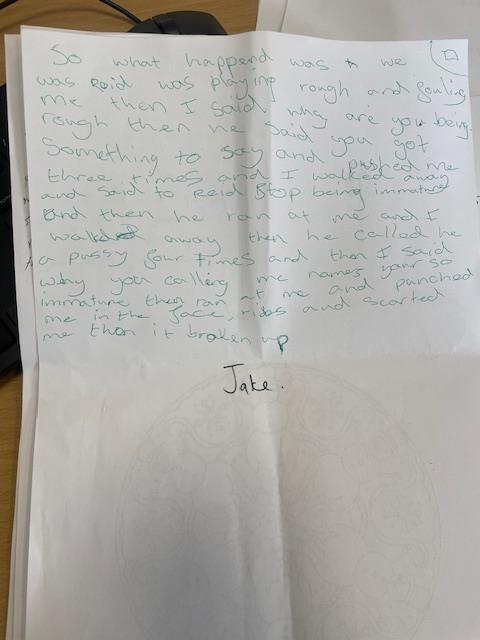 So what happend was we
was Reid was playing rough and fouling
me then I said why are you being
rough then he said you got
Something to say and pushed me
three times and I walked away
and said to Reid Stop being immature
and then he ran at me and I
walked away then he called he
a pussy four times and then I said
why you calling me names your so
immature then ran at me and punched
me in the face, ribs and scarted
me then it broken up
Jake.